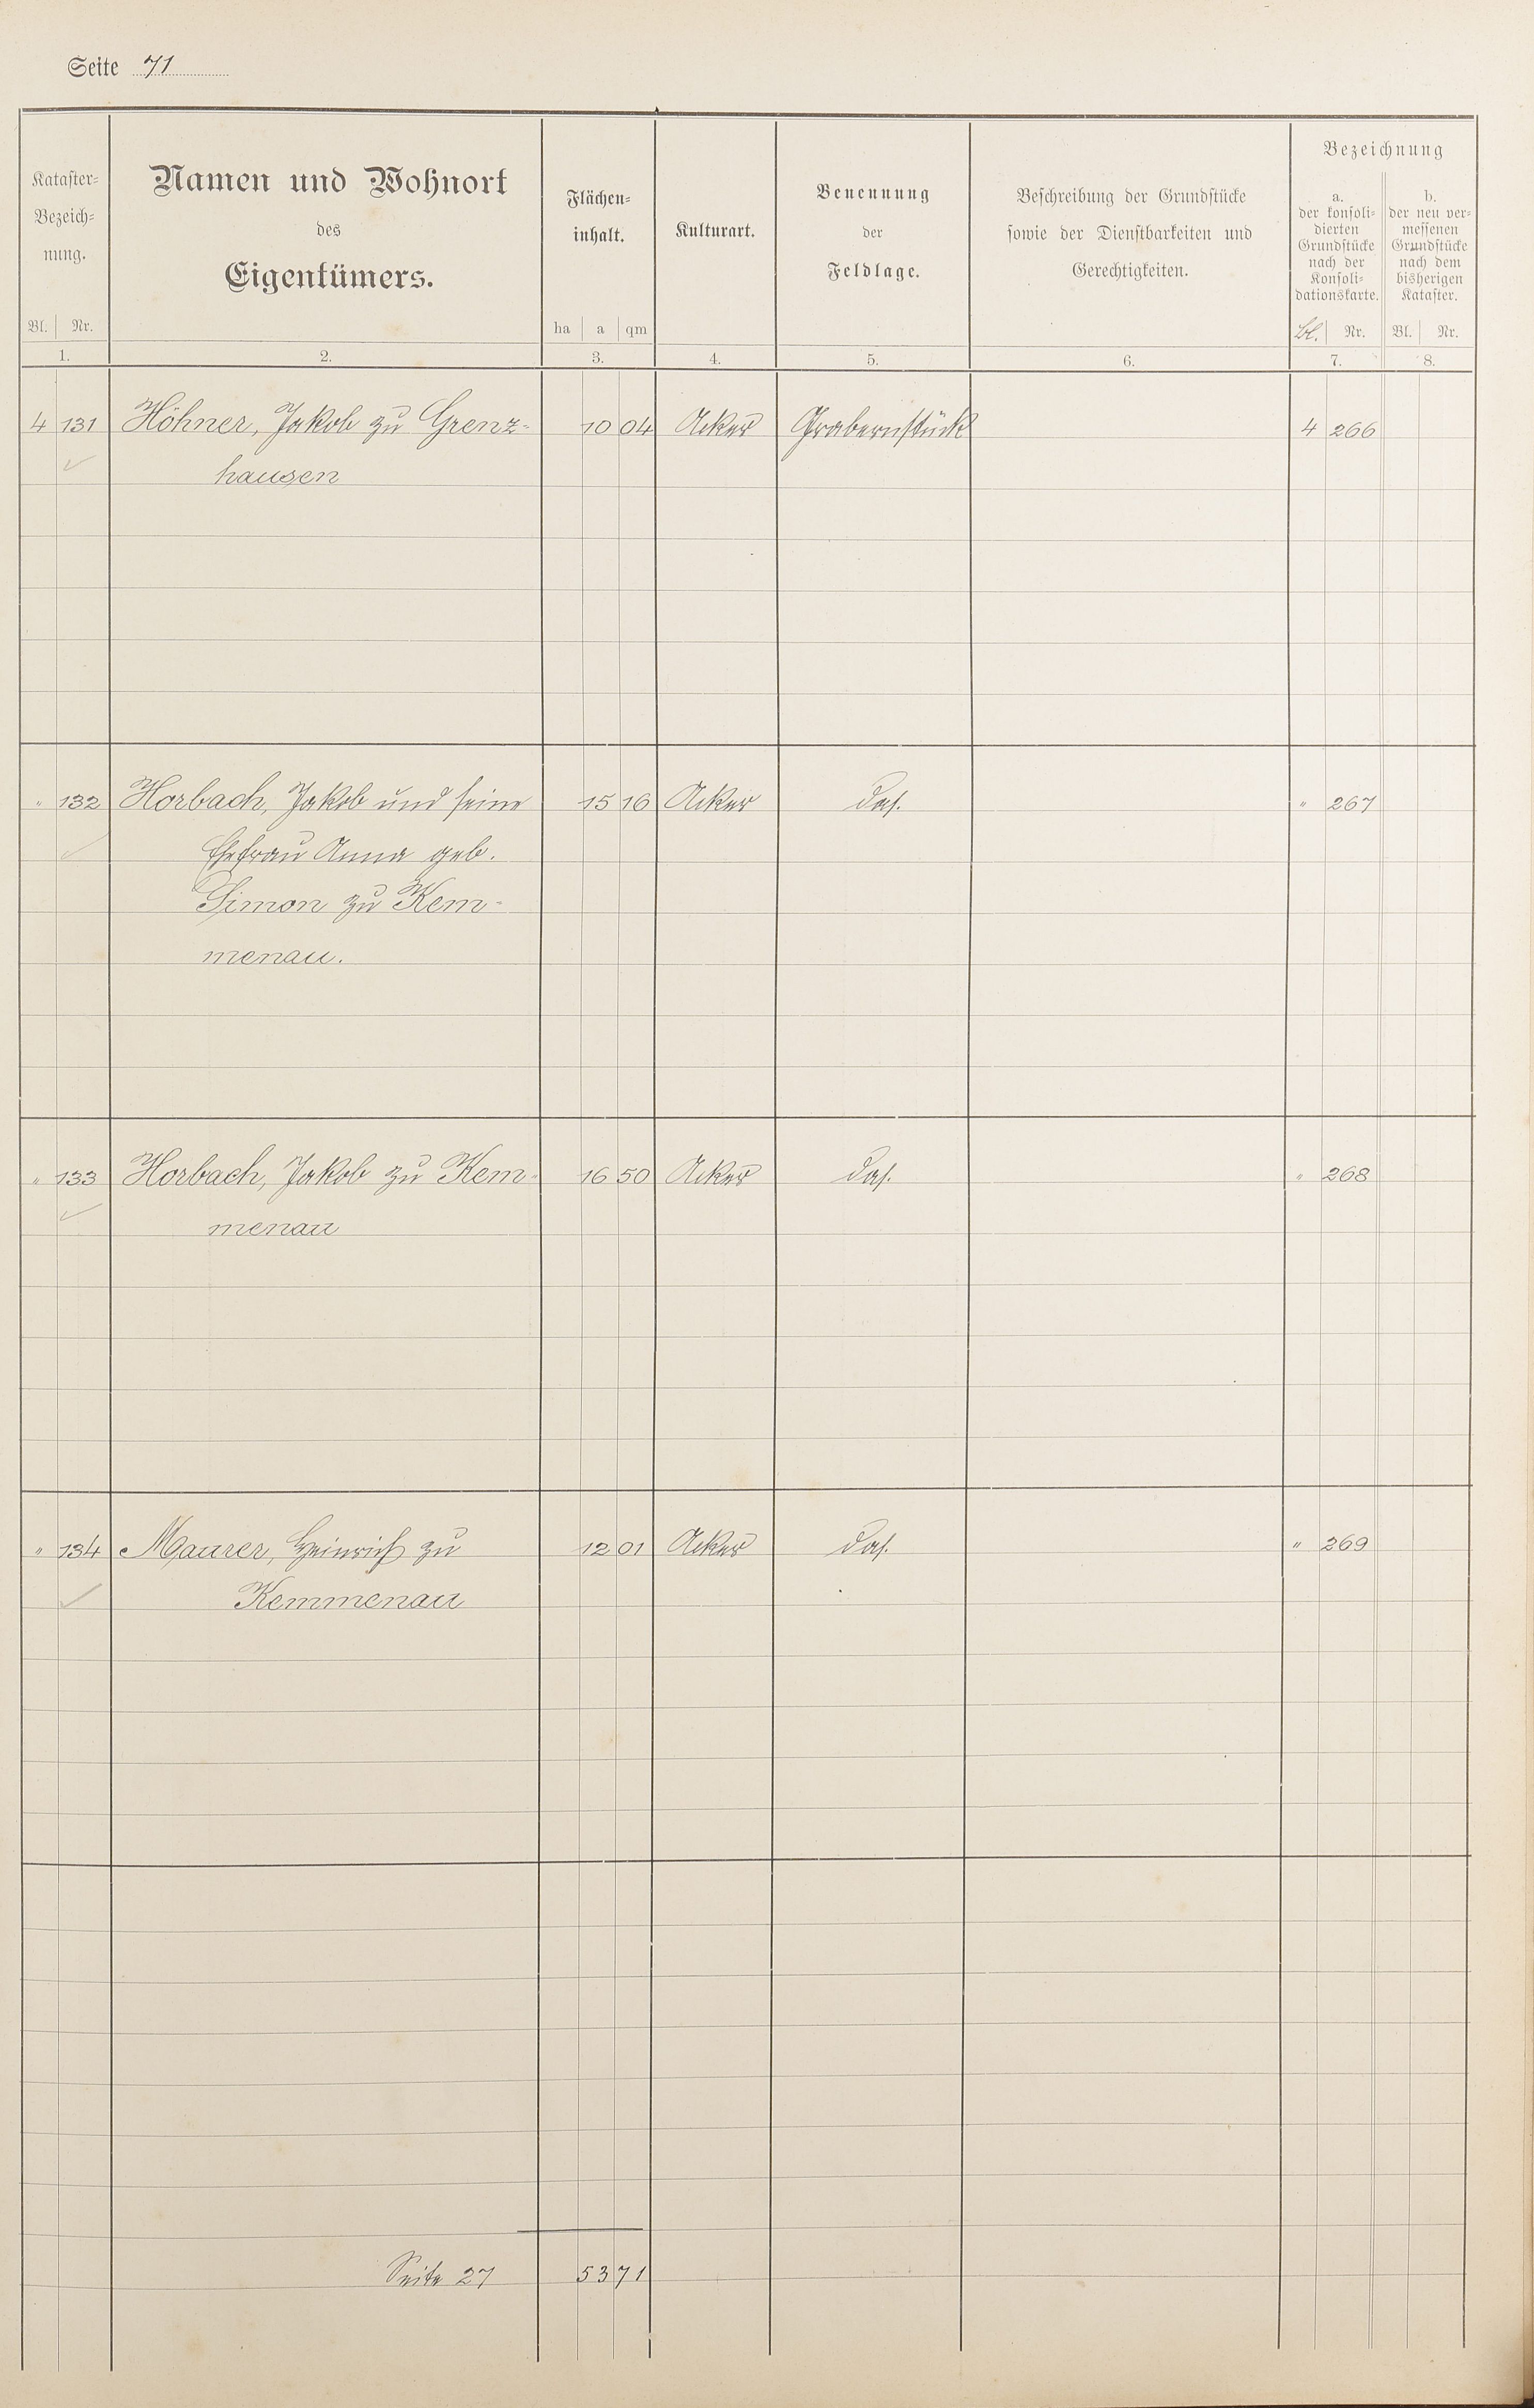 Seite 71
Kataster-
Bezeich-
nung.
Bl. Nr.
1.
Namen und Wohnort
des
Eigentümers.
2.
Flächen-
inhalt.
ha a qm
3.
Kulturart.
4.
Benennung
der
Feldlage.
5.
Beschreibung der Grundstücke
sowie der Dienstbarkeiten und
Gerechtigkeiten.
6.
Bezeichnung
a.
der konsoli-
dierten
Grundstücke
nach der
Konsoli-
dationskarte.
Bl. Nr.
7.
b.
der neu ver-
messenen
Grundstücke
nach dem
bisherigen
Kataster.
Bl. Nr.
8.
4 131 Höhner, Jakob zu Grenz- 10 04 Acker Grabernstück 4 266
hausen
" 132 Horbach, Jakob und seine 15 16 Acker das. " 267
Ehefrau Anna geb.
Simon zu Kem-
menau.
" 133 Horbach, Jakob zu Kem- 16 50 Acker das. " 268
menau
" 134 Maurer, Heinrich zu 12 01 Acker das. " 269
Kemmenau
Seite 27 53 71